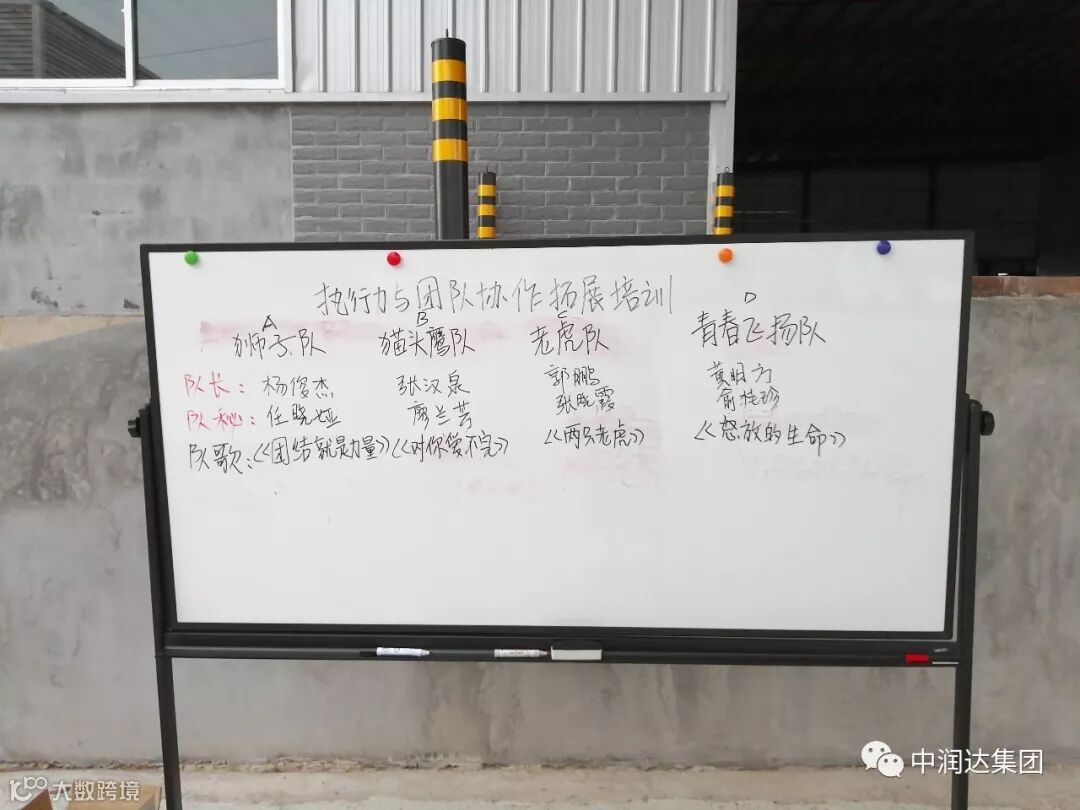 执行力与团队协作拓展培训
A B C D
狮子队 猫头鹰队 老虎队 青春飞扬队
队长：杨俊杰 张汉泉 郭鹏 黄明方
队秘：任晓娅 廖兰芸 张晓霞 俞桂珍
队歌：《团结就是力量》《对你爱不完》《两只老虎》《怒放的生命》
中润达集团
大数跨境